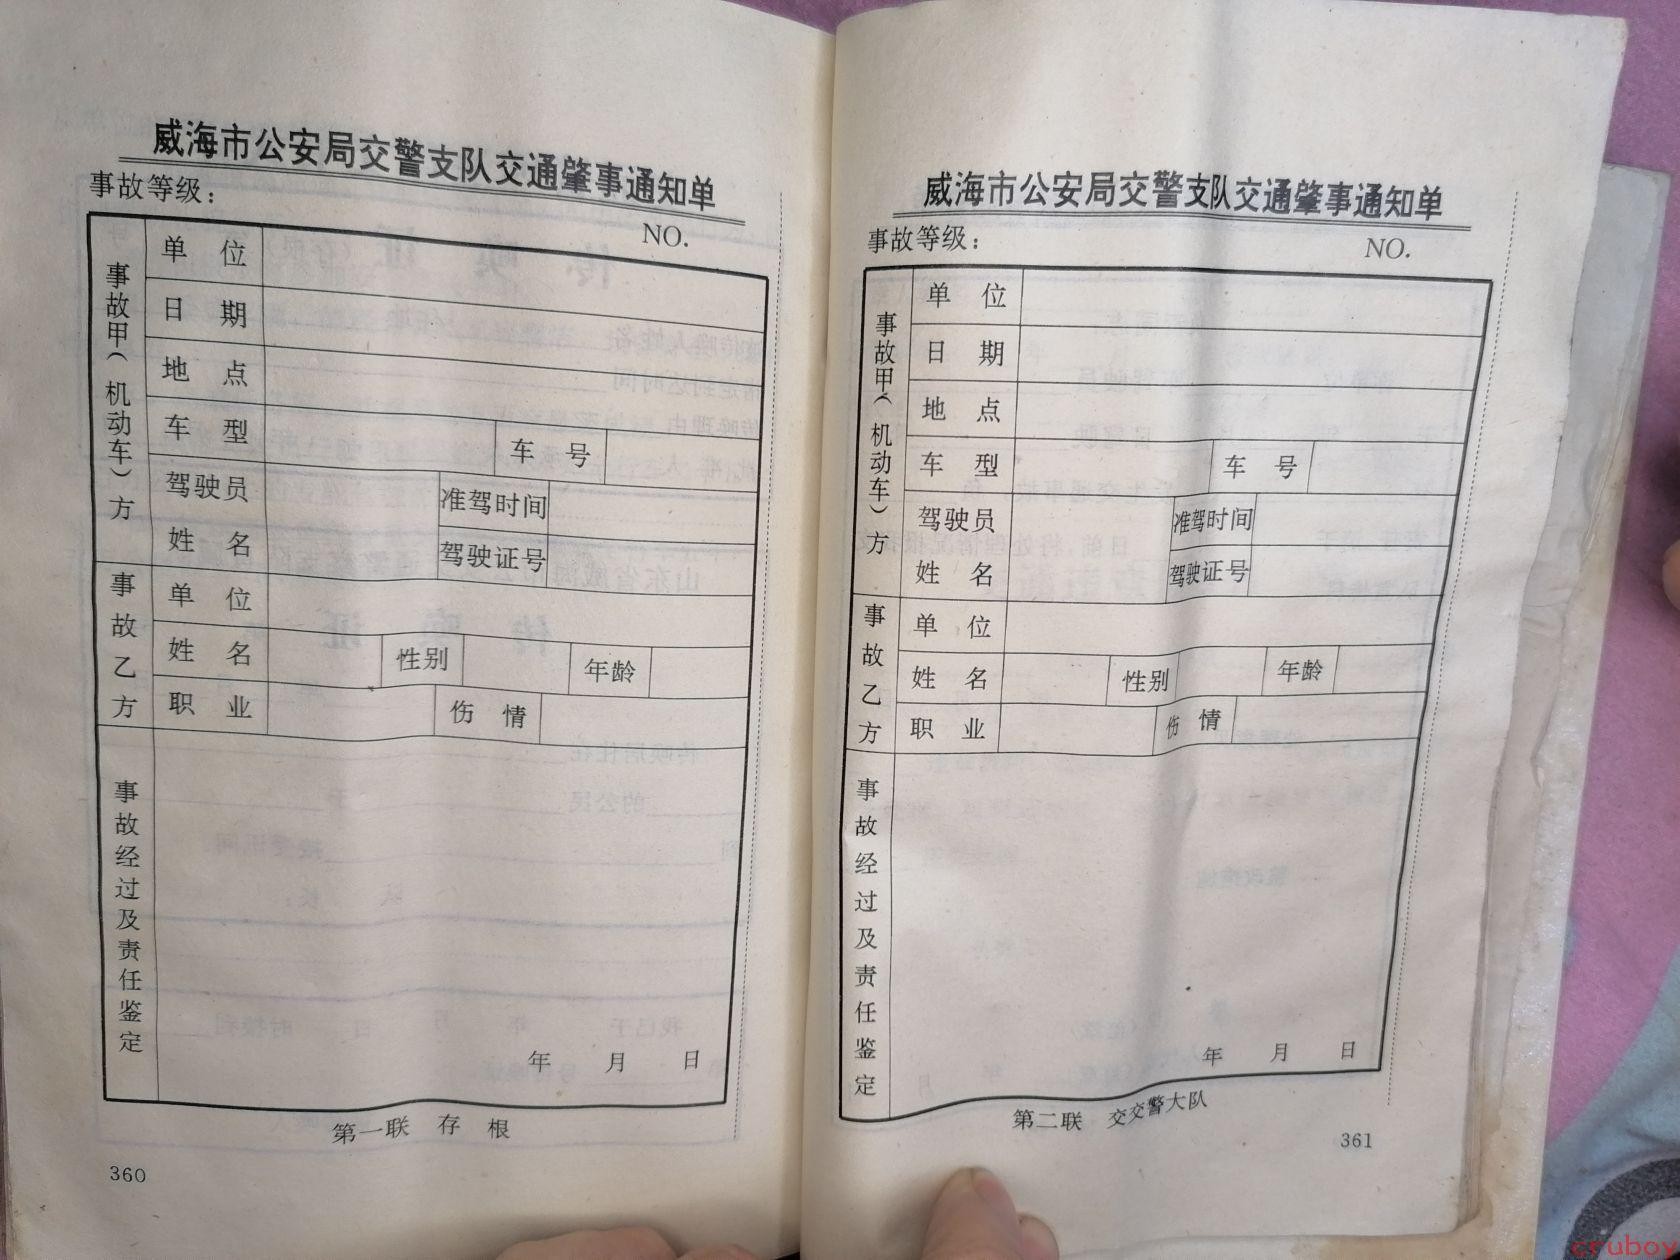 威海市公安局交警支队交通肇事通知单
事故等级：
NO.
事故甲（机动车）方
单 位
日 期
地 点
车 型 车 号
驾驶员 姓 名 准驾时间
驾驶证号
事故乙方
单 位
姓 名 性别 年龄
职 业 伤 情
事故经过及责任鉴定
年 月 日
第一联 存 根
360
威海市公安局交警支队交通肇事通知单
事故等级：
NO.
事故甲（机动车）方
单 位
日 期
地 点
车 型 车 号
驾驶员 姓 名 准驾时间
驾驶证号
事故乙方
单 位
姓 名 性别 年龄
职 业 伤 情
事故经过及责任鉴定
年 月 日
第二联 交交警大队
361
cruboy